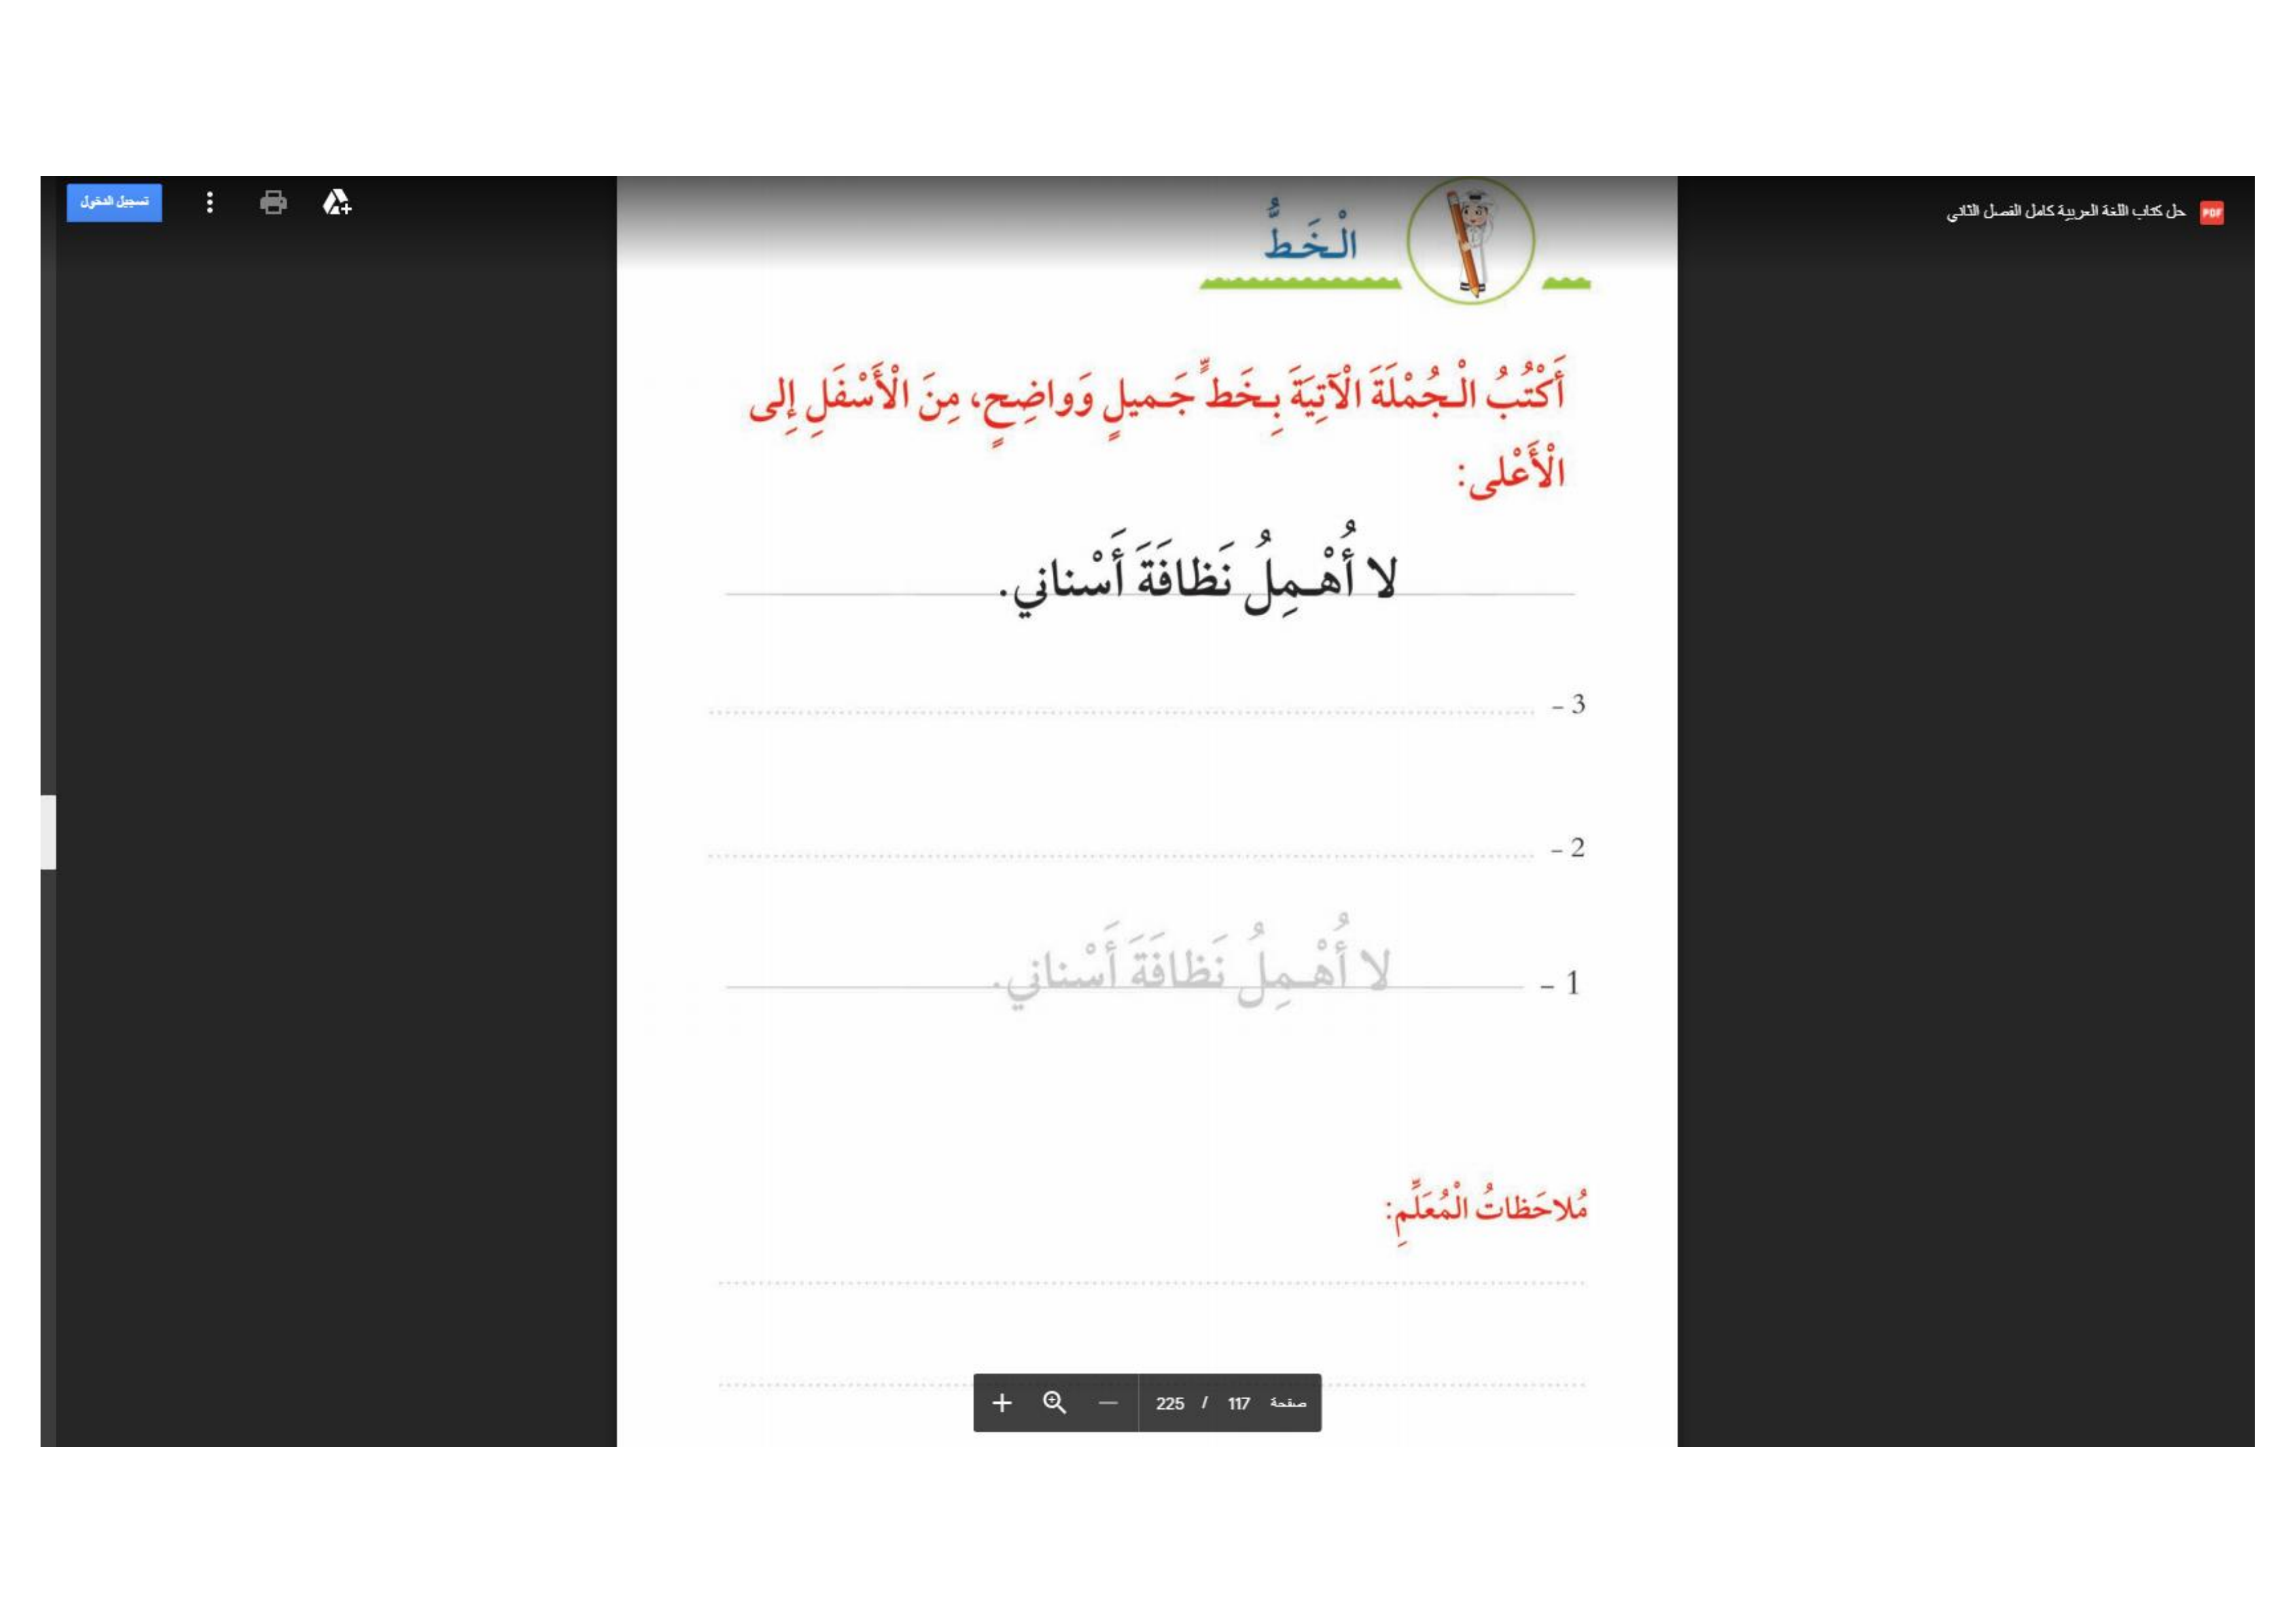 تسجيل الدخول
PDF حل كتاب اللغة العربية كامل الفصل الثاني
الْخَطُّ
أَكْتُبُ الْجُمْلَةَ الْآتِيَةَ بِخَطٍّ جَميلٍ وَواضِحٍ، مِنَ الْأَسْفَلِ إِلى
الْأَعْلى:
لا أُهْمِلُ نَظافَةَ أَسْناني.
3 -
2 -
1 - لا أُهْمِلُ نَظافَةَ أَسْناني.
مُلاحَظاتُ الْمُعَلِّمِ:
صفحة 117 / 225